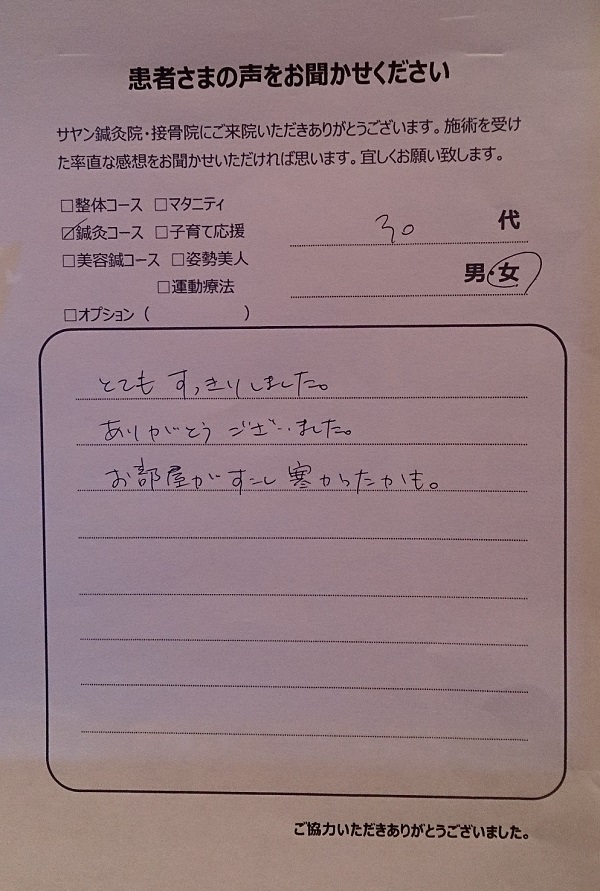 患者さまの声をお聞かせください
サヤン鍼灸院・接骨院にご来院いただきありがとうございます。施術を受け
た率直な感想をお聞かせいただければ思います。宜しくお願い致します。
□整体コース □マタニティ
☑鍼灸コース □子育て応援
□美容鍼コース □姿勢美人
□運動療法
□オプション（ ）
30 代
男・女
とても すっきりしました。
ありがとう ございました。
お部屋が すこし 寒かったかも。
ご協力いただきありがとうございました。